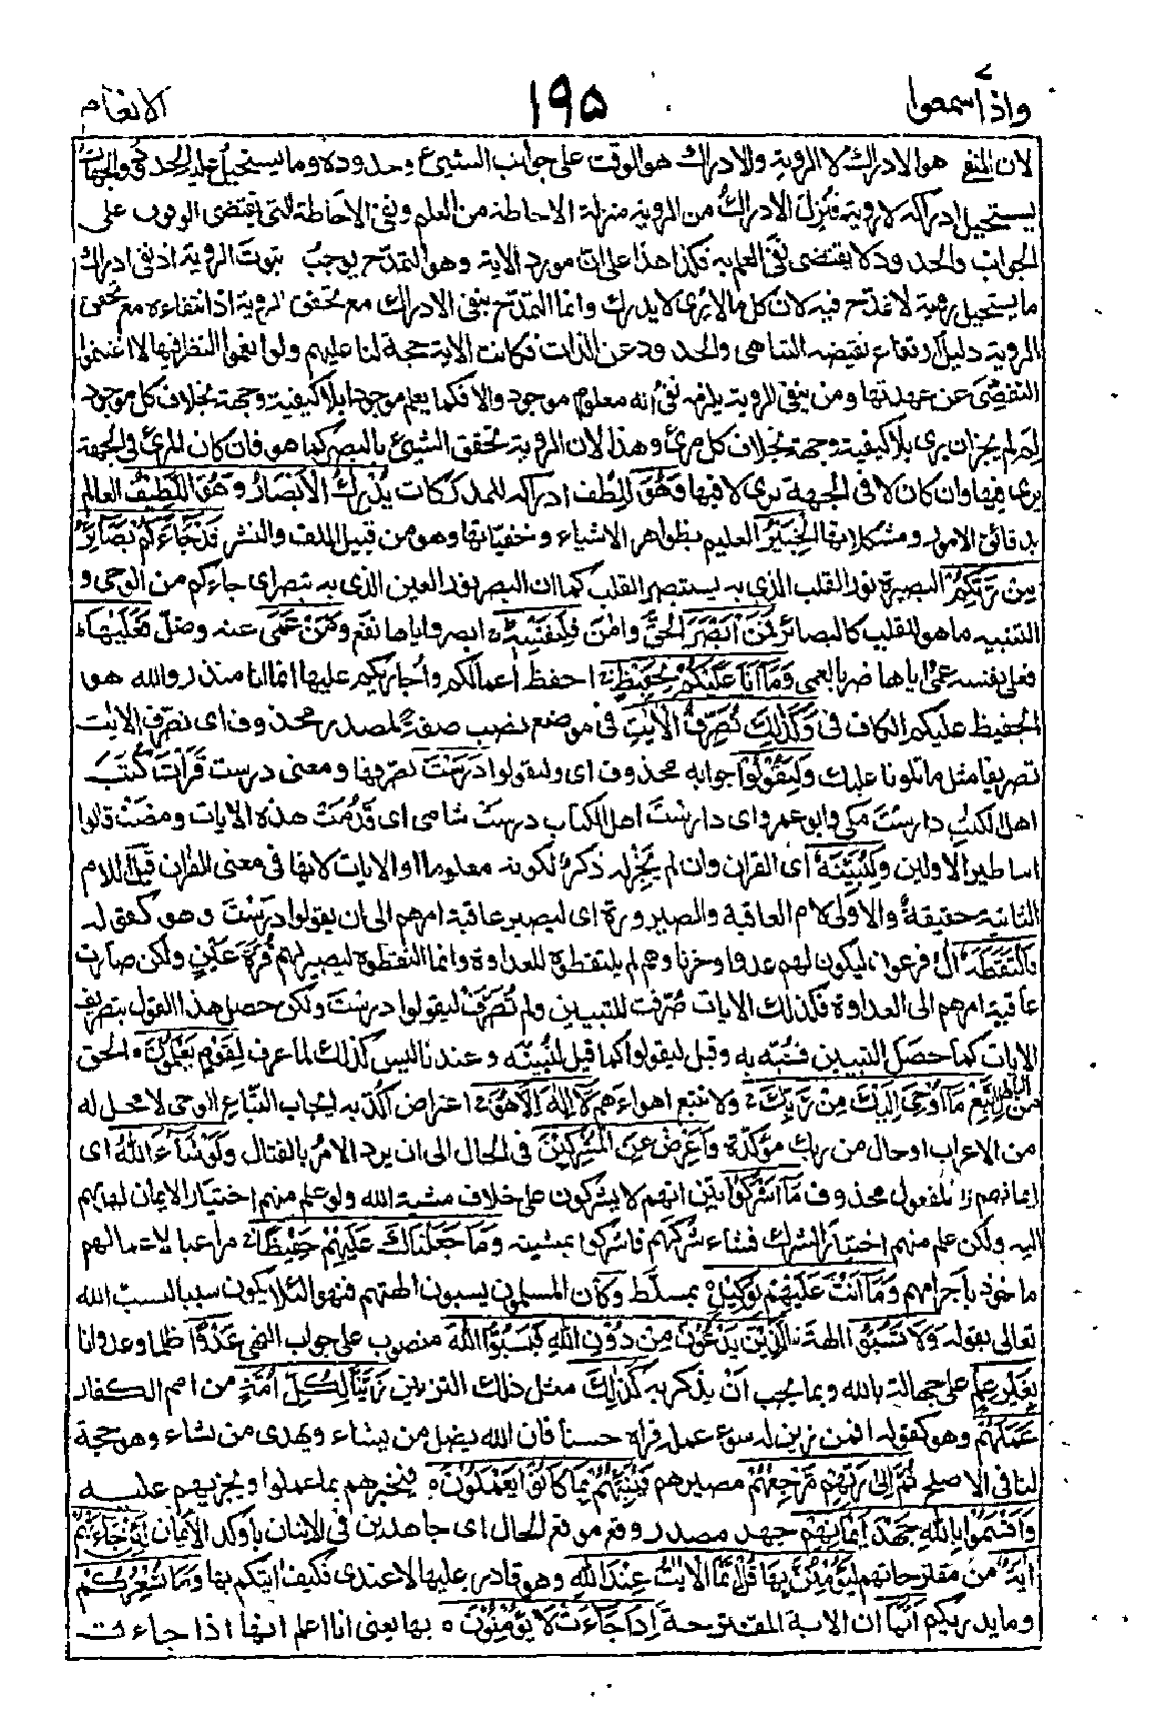 واذا سمعوا ٧
١٩٥
الانعام
لان المنفي هو الادراك لا الروية والادراك هو الوقوف على جوانب الشيئ وحدوده وما يستحيل عليه الحدود والجهات
يستحيل ادراكه لا رويته فنزل الادراك من الروية منزلة الاحاطة من العلم ونفي الاحاطة التي تقتضى الوقوف على
الجوانب والحدود لا يقتضى نفى العلم به فكذا هذا على ان مورد الاية وهو التمدح يوجب ثبوت الروية اذ نفى ادراك
ما يستحيل رويته لا تمدح فيه لان كل ما لا يرى لا يدرك وانما التمدح بنفى الادراك مع تحقق الروية اذ انتفاءه مع تحقق
الروية دليل ارتفاع نقيضه التناهى والحدود عن الذات فكانت الاية حجة لنا عليهم ولو انعموا النظر فيها لاغتنموا
التفصّى عن عهدتها ومن ينفى الروية يلزمه نفى انه معلوم موجود والا فكما يعلم موجودا بلا كيفية وجهة بخلاف كل موجود
لِمَ لم يجز ان يرى بلا كيفية وجهة بخلاف كل مرئ وهذا لان الروية تحقق الشيئ بالبصر كما هو فان كان المرئ فى الجهة
يرى فيها وان كان لا فى الجهة يرى لا فيها وَهُوَ للطف ادراكه للمدركات يُدْرِكُ الْاَبْصَارَ وَهُوَ اللَّطِيْفُ العالم
بدقائق الامور ومشكلاتها الْخَبِيْرُ العليم بظواهر الاشياء وخفيّاتها وهو من قبيل اللف والنشر قَدْ جَآءَكُمْ بَصَآئِرُ
مِنْ رَّبِّكُمْ البصيرة نور القلب الذى به يستبصر القلب كما ان البصر نور العين الذى به تبصر اى جاءكم من الوحى و
التنبيه ما هو للقلب كالبصائر فَمَنْ اَبْصَرَ الحق واٰمن فَلِنَفْسِهٖ ابصر واياها نفع وَمَنْ عَمِىَ عنه وضل فَعَلَيْهَا
فعلى نفسه عمى واياها ضر بالعمى وَمَآ اَنَا عَلَيْكُمْ بِحَفِيْظٍ احفظ اعمالكم واُجازيكم عليها انما انا منذر والله هو
الحفيظ عليكم الكاف فى وَكَذٰلِكَ نُصَرِّفُ الْاٰيٰتِ فى موضع نصب صفة لمصدر محذوف اى نصرف الايات
تصريفا مثل ما تلونا عليك وَلِيَقُوْلُوْا جوابه محذوف اى وليقولوا دَرَسْتَ نصرفها ومعنى درست قرأت كتب
اهل الكتب دارست مكى وابو عمرو اى دارست اهل الكتاب درست شامى اى قدمت هذه الايات ومضت قالوا
اساطير الاولين وَلِنُبَيِّنَهٗ اى القران وان لم يجز له ذكر لكونه معلوما او الايات لانها فى معنى القران قيل اللام
الثانية حقيقة والاولى لام العاقبة والصيرورة اى ليصير عاقبة امرهم الى ان يقولوا درست وهو كقوله
فالتقطه ال فرعون ليكون لهم عدوا وحزنا وهم لم يلتقطوه للعداوة وانما التقطوه ليصير لهم قرة عين ولكن صارت
عاقبة امرهم الى العداوة فكذلك الايات صرفت للتبيين ولم تصرف ليقولوا درست ولكن حصل هذا القول بتصريف
الايات كما حصل التبيين فشبه به وقيل ليقولوا كما قيل لنبينه وعندنا ليس كذلك لما عرف لِقَوْمٍ يَّعْلَمُوْنَ الحق
من الباطل اِتَّبِعْ مَآ اُوْحِىَ اِلَيْكَ مِنْ رَّبِّكَ ولا تتبع اهواءهم لَآ اِلٰهَ اِلَّا هُوَ اعتراض اكد به ايجاب اتباع الوحى لا محل له
من الاعراب او حال من ربك مؤكدة وَاَعْرِضْ عَنِ الْمُشْرِكِيْنَ فى الحال الى ان يرد الامر بالقتال وَلَوْ شَآءَ اللّٰهُ اى
ايمانهم فالمفعول محذوف مَآ اَشْرَكُوْا بين انهم لا يشركون على خلاف مشية الله ولو علم منهم اختيار الايمان لهداهم
اليه ولكن علم منهم اختيار الشرك فشاء شركهم فاشركوا بمشيته وَمَا جَعَلْنَاكَ عَلَيْهِمْ حَفِيْظًا مراعيا لاعمالهم
ماخوذ باجرامهم وَمَآ اَنْتَ عَلَيْهِمْ بِوَكِيْلٍ بمسلط وكان المسلمون يسبون الهتهم فنهوا لئلا يكون سببا لسب الله
تعالى بقوله وَلَا تَسُبُّوا الهة الَّذِيْنَ يَدْعُوْنَ مِنْ دُوْنِ اللّٰهِ فَيَسُبُّوا اللّٰهَ منصوب على جواب النهى عَدْوًا ظلما وعدوانا
بِغَيْرِ عِلْمٍ على جهالة بالله وبما يجب ان يذكر به كَذٰلِكَ مثل ذلك التزيين زَيَّنَّا لِكُلِّ اُمَّةٍ من امم الكفار
عَمَلَهُمْ وهو كقوله افمن زين له سوء عمله فراه حسنا فان الله يضل من يشاء ويهدى من يشاء وهو حجة
لنا فى الاصلح ثُمَّ اِلٰى رَبِّهِمْ مَّرْجِعُهُمْ مصيرهم فَيُنَبِّئُهُمْ بِمَا كَانُوْا يَعْمَلُوْنَ فيخبرهم بما عملوا ويجزيهم عليه
وَاَقْسَمُوْا بِاللّٰهِ جَهْدَ اَيْمَانِهِمْ جهد مصدر وقع موقع الحال اى جاهدين فى الاتيان باوكد الايمان لَئِنْ جَآءَتْهُمْ
اٰيَةٌ من مقترحاتهم لَّيُؤْمِنُنَّ بِهَا قُلْ اِنَّمَا الْاٰيٰتُ عِنْدَ اللّٰهِ وهو قادر عليها لا عندى فكيف اتيكم بها وَمَا يُشْعِرُكُمْ
وما يدريكم اَنَّهَا ان الاية المقترحة اِذَا جَآءَتْ لَا يُؤْمِنُوْنَ بها يعنى انا اعلم انها اذا جاءت